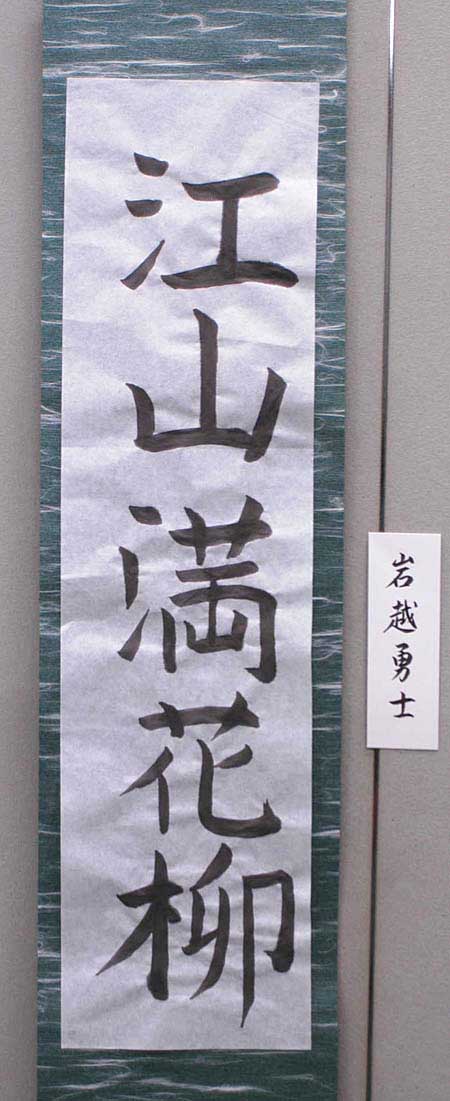 江山満花柳
岩越勇士